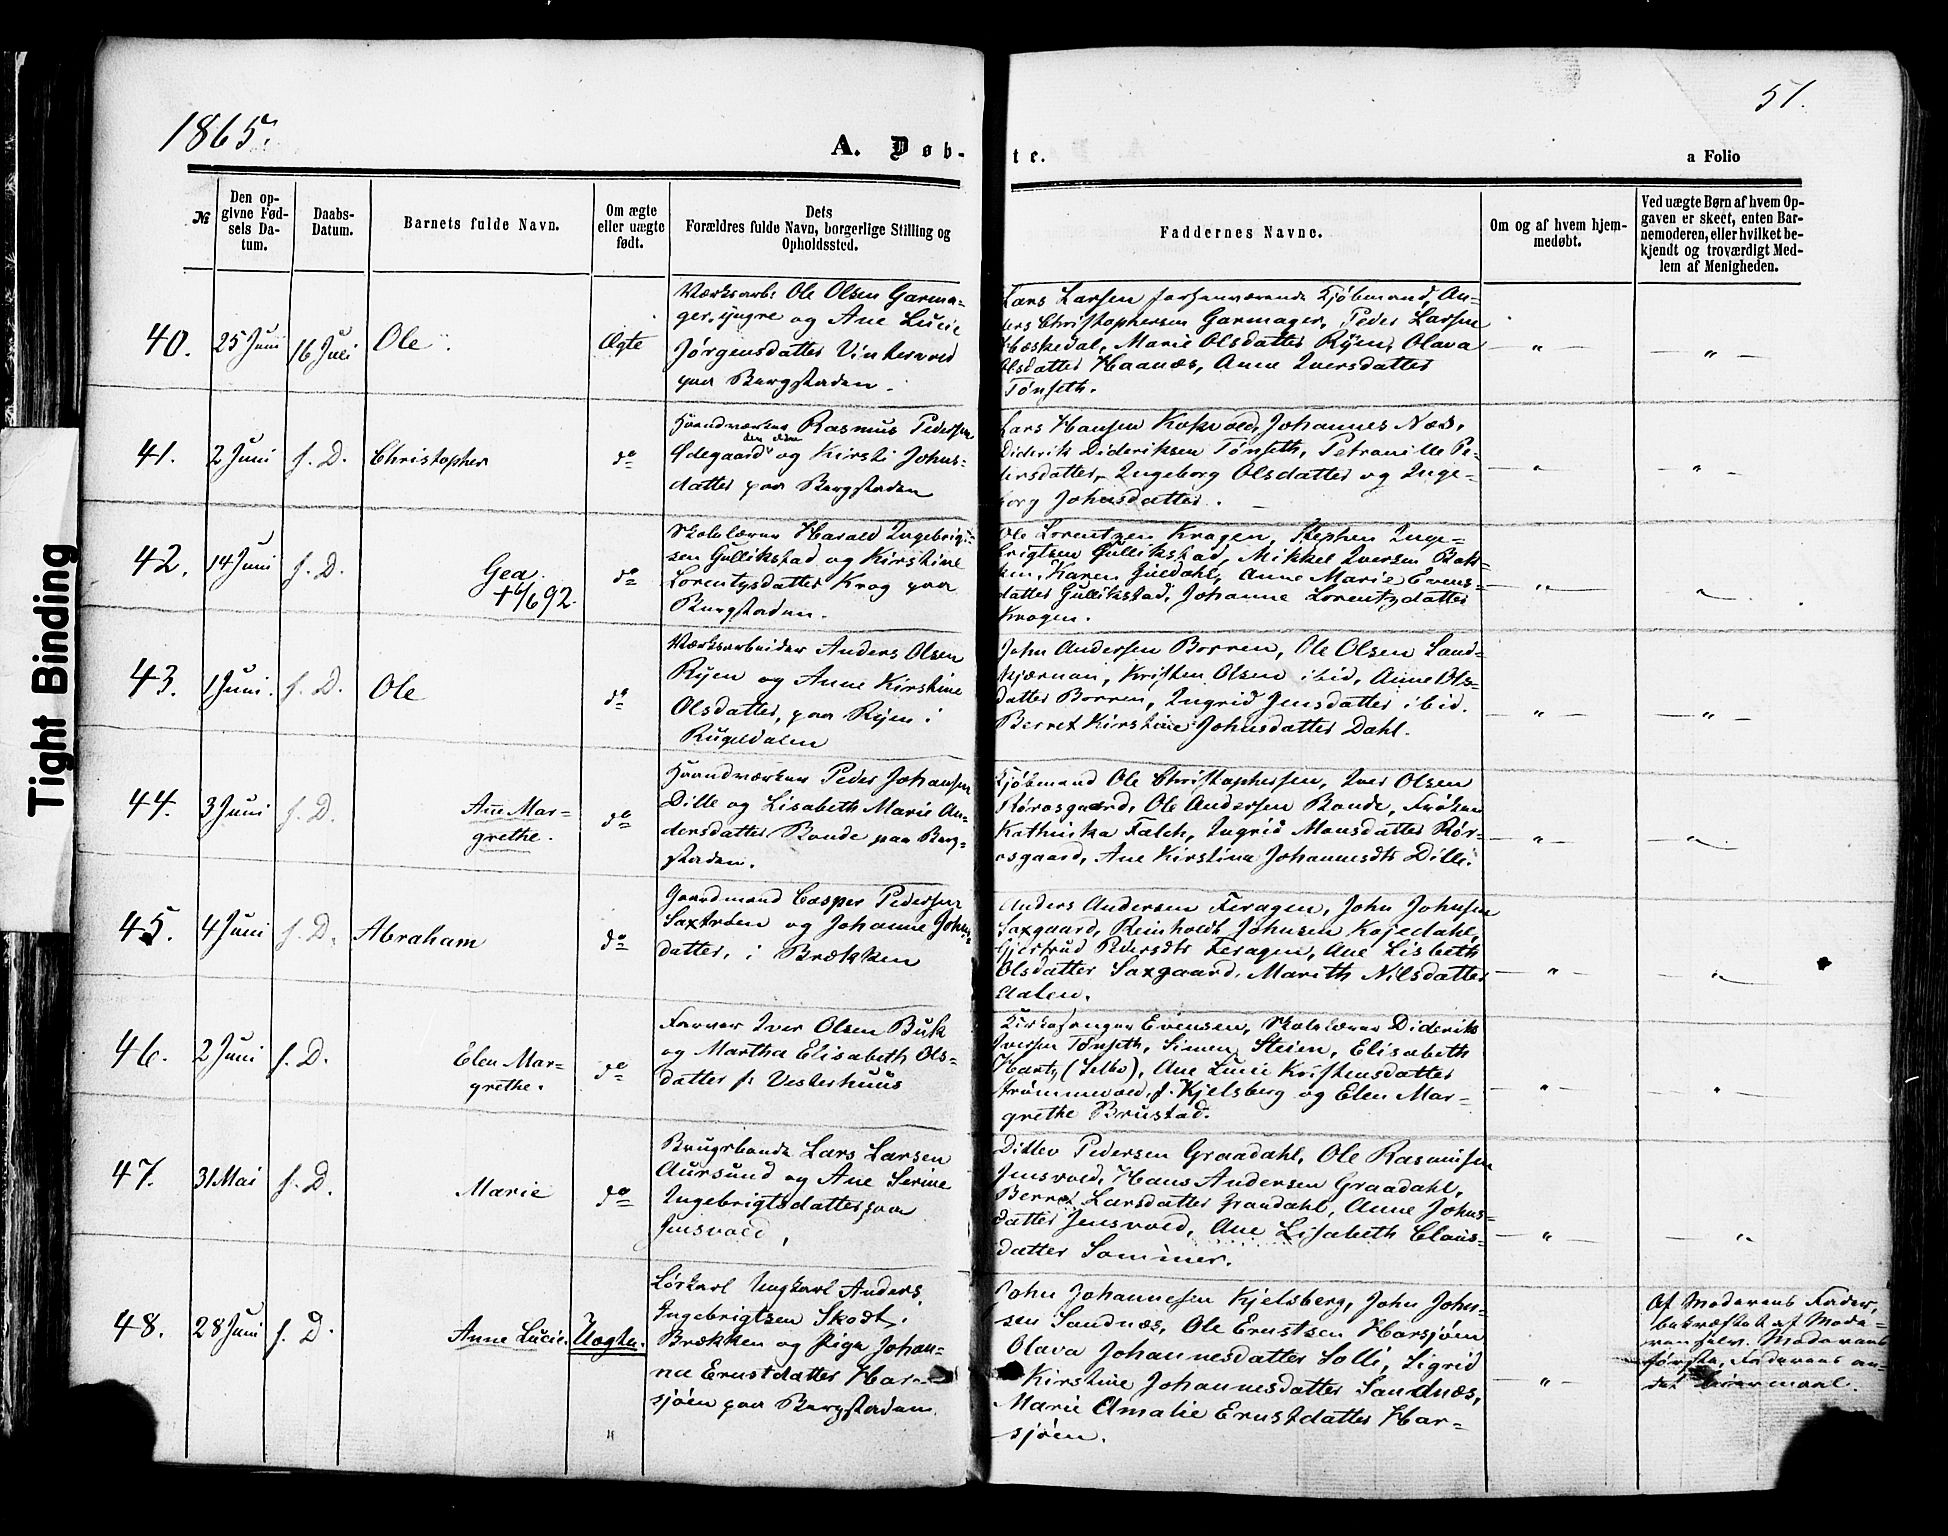 1865.
51.
A. Døb-
te.
a Folio
№
Den op-
givne Fød-
sels Da-
tum.
Daabs-
Datum.
Barnets fulde Navn.
Om ægte
eller uægte
født.
Dets
Forældres fulde Navn, borgerlige Stilling og
Opholdssted.
Faddernes Navne.
Om og af hvem hjem-
medøbt.
Ved uægte Børn af hvem Op-
gaven er skeet, enten Bar-
nemoderen, eller hvilket be-
kjendt og troværdigt Med-
lem af Menigheden.
Tight Binding
40.
25 Juni
16 Juli
Ole
Ægte
Værksarb. Ole Olsen Garma-
ger, yngre og Ane Lucie
Jørgensdatter Vintervold
paa Bergstaden.
Lars Larsen forhenværende Kjøbmand, An-
ders Christophersen Garmager, Peder Larsen
Hæskedal, Marie Olsdatter Ryen, Olava
Olsdatter Haanæs, Anne Iversdatter
Tønseth.
41.
2 Juni
s. D.
Christopher
do
Haandværker Rasmus Pedersen
den eldre
Ødegaard og Kirsti Johns-
datter paa Bergstaden
Lars Hansen Kokvold, Johannes Næs,
Diderik Dideriksen Tønseth, Petronille Pe-
dersdatter, Ingeborg Olsdatter og Inge-
borg Johnsdatter.
42.
14 Juni
s. D.
Gea.
+ 6/6 92.
do
Skolelærer Harald Ingebrigt-
sen Gullikstad og Kirstine
Lorentzdatter Krog paa
Bergstaden.
Ole Lorentzen Krogen, Stephen Inge-
brigtsen Gullikstad, Mikkel Iversen Bak-
ken, Karen Guldahl, Anne Marie Evens-
datter Gullikstad, Johanne Lorentzdatter
Krogen.
43.
1 Juni.
s. D.
Ole
do
Værksarbeider Anders Olsen
Ryen og Anne Kirstine
Olsdatter, paa Ryen i
Rugeldalen
John Andersen Borren, Ole Olsen Land-
kjærnan, Kristen Olsen ibid, Anne Ols-
datter Borren, Ingrid Jensdatter ibid.
Berret Kirstine Johnsdatter Dahl.
44.
3 Juni
s. D.
Ane Mar-
grethe.
do
Haandværker Peder Johansen
Dille og Lisabeth Marie An-
dersdatter Bonde paa Berg-
staden.
Kjøbmand Ole Christophersen, Iver Olsen
Rørosgaard, Ole Andersen Bonde, Frøken
Kathinka Falch, Ingrid Monsdatter Rør-
osgaard, Ane Kirstina Johannesdt Dille.
45.
4 Juni
s. D.
Abraham
do
Gaardmand Casper Pedersen
Saxtrøen og Johanne Johns-
datter, i Brækken
Anders Andersen Feragen, John Johnsen
Saxgaard, Reinholdt Johnsen Kojedahl,
Gjertrud Pedersdtr Feragen, Ane Lisbeth
Olsdatter Saxgaard, Marith Nilsdatter
Dalen.
46.
2 Juni
s. D.
Elen Mar-
grethe.
do
Farver Iver Olsen Buk
og Martha Elisabeth Ols-
datter f: Vesterhuus
Kirkesanger Evensen, Skolelærer Diderik
Iversen Tønseth, Simen Steien, Elisabeth
Hartz (Selbo), Ane Lucie Kristensdatter
Strømmevold, f. Kjelsberg og Elen Mar-
grethe Brustad.
47.
31 Mai
s. D.
Marie
do
Brugsbonde Lars Larsen
Aursund og Ane Serine
Ingebrigtsdatter paa
Jensvold,
Ditlev Pedersen Graadahl, Ole Rasmussen
Jensvold, Hans Andersen Graadahl,
Berret Larsdatter Graadahl, Anne Johns-
datter Jensvold, Ane Lisabeth Claus-
datter Sommer.
48.
28 Juni
s. D.
Anne Lucie.
Uægte.
Løskarl Ungkarl Anders
Ingebrigtsen Skodt,
Brækken og Pige Johan-
na Ernstdatter Har-
sjøen paa Bergstaden.
John Johannesen Kjelsberg, John John-
sen Sandnæs, Ole Ernstsen Harsjøen
Olava Johannesdatter Solli, Sigrid
Kirstine Johannesdatter Sandnæs,
Marie Amalie Ernstdatter Har-
sjøen.
Af Moderens Fader,
bekræftet af Mode-
ren selv. Moderens
første, Faderens an-
det Leiermaal.